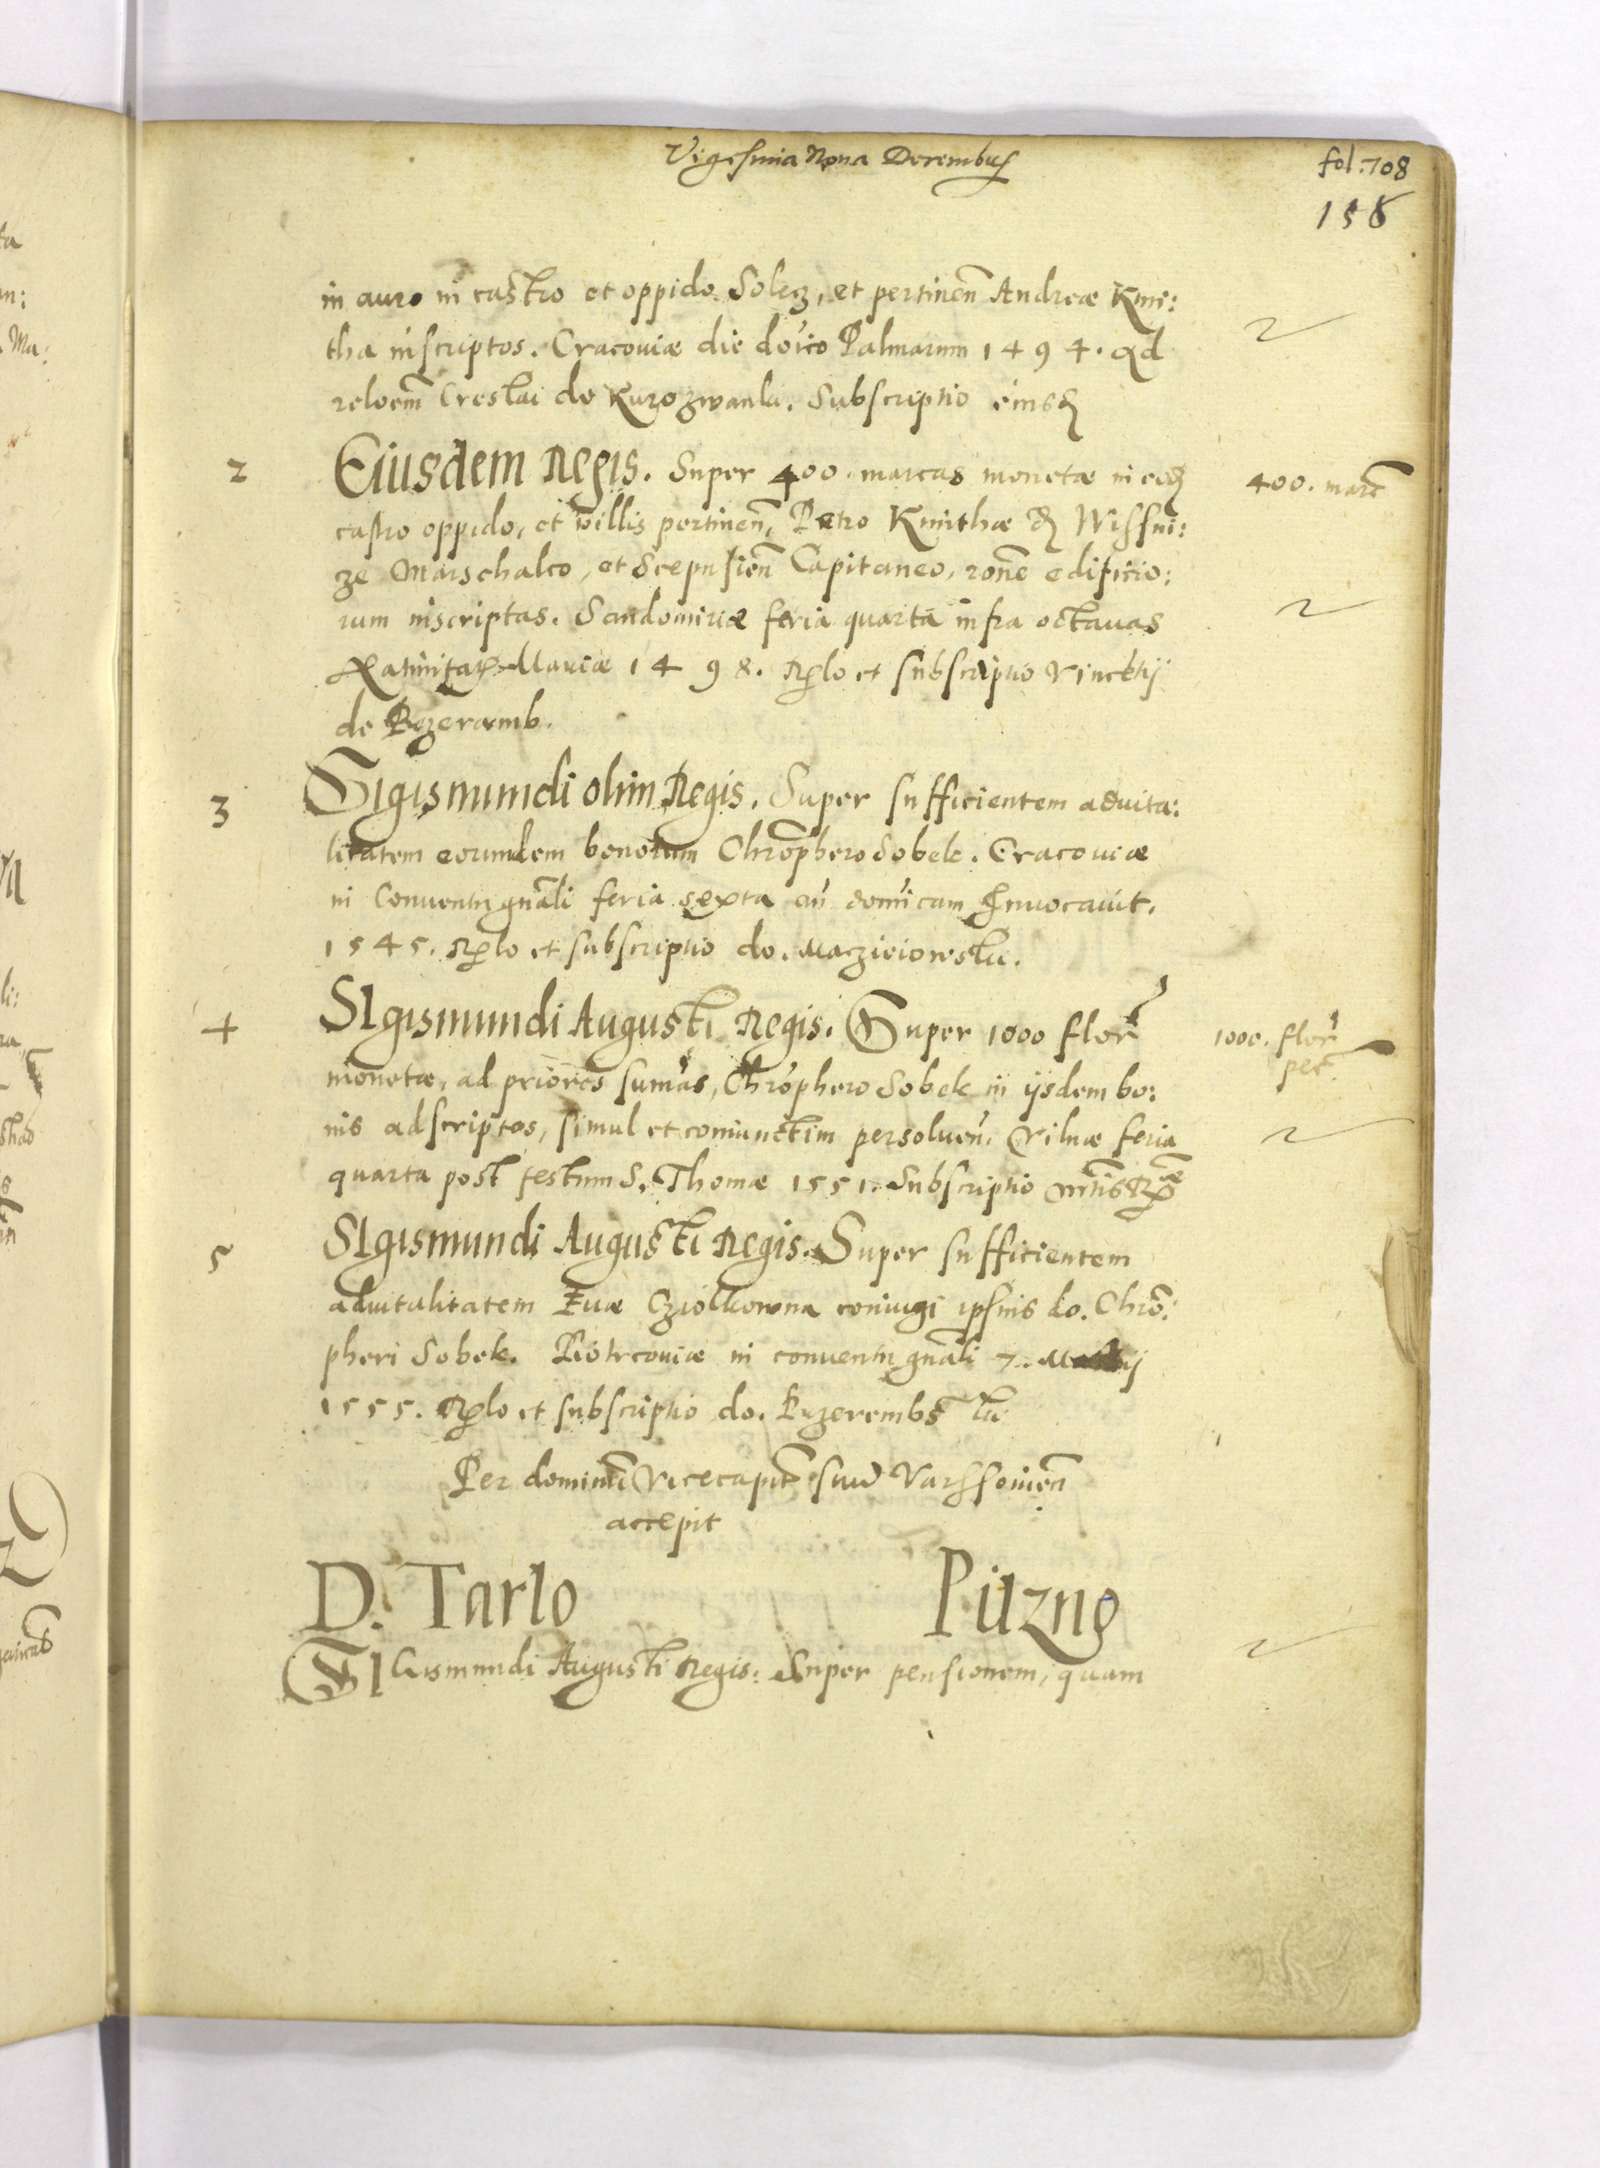 Vigesima Nona Decembris
fol: 708
158
in auro in castro et oppido Solecz, et pertinen̄ Andreæ Kmi:
tha inscriptos. Cracoviæ die do͞ico Palmarum 1494. Ad
reloem̄ Creslai de Kurozwanki. Subscriptio eiusd
2 Eiusdem Regis. Super 400. marcas monetæ in eod
400. marc
castro oppido, et villis pertinen̄, Petro Kmithæ d Wissni:
ze Marschalco, et Scepusien̄ Capitaneo, ron̄e edificio:
rum inscriptas. Sandomiriæ feria quarta infra octavas
Mariæ 1498. Rlo et subscriptio Vincētij
de Przeramb.
3 Sigismundi olim Regis. Super sufficientem advita:
litatem eorundem bonorum Chrōphero Sobek. Cracoviæ
in Conventu gn̄ali feria sexta an̄ domīcam Invocavit.
1545. Rlo et subscriptio do. Maczieiowski.
4 Sigismundi Augusti Regis. Super 1000 flor
1000. flor
pec
monetæ, ad priores sum̄as, Chrōphero Sobek in ijsdem bo:
nis adscriptos, simul et coniunctim persoluen̄. Vilnæ feria
quarta post festum S. Thomæ 1551. Subscriptio
5 Sigismundi Augusti Regis. Super sufficientem
advitalitatem Evæ Cziolkowna coniugi ipsius do. Chrō:
pheri Sobek. Piotrcoviæ in conventu gn̄ali 7. Maij
1555. Rlo et subscriptio do. Przerembski
Per dominū Vicecapit̄ suū Varssovien̄
accepit
D. Tarlo Pilzno
Sigismundi Augusti Regis. Super pensionem, quam